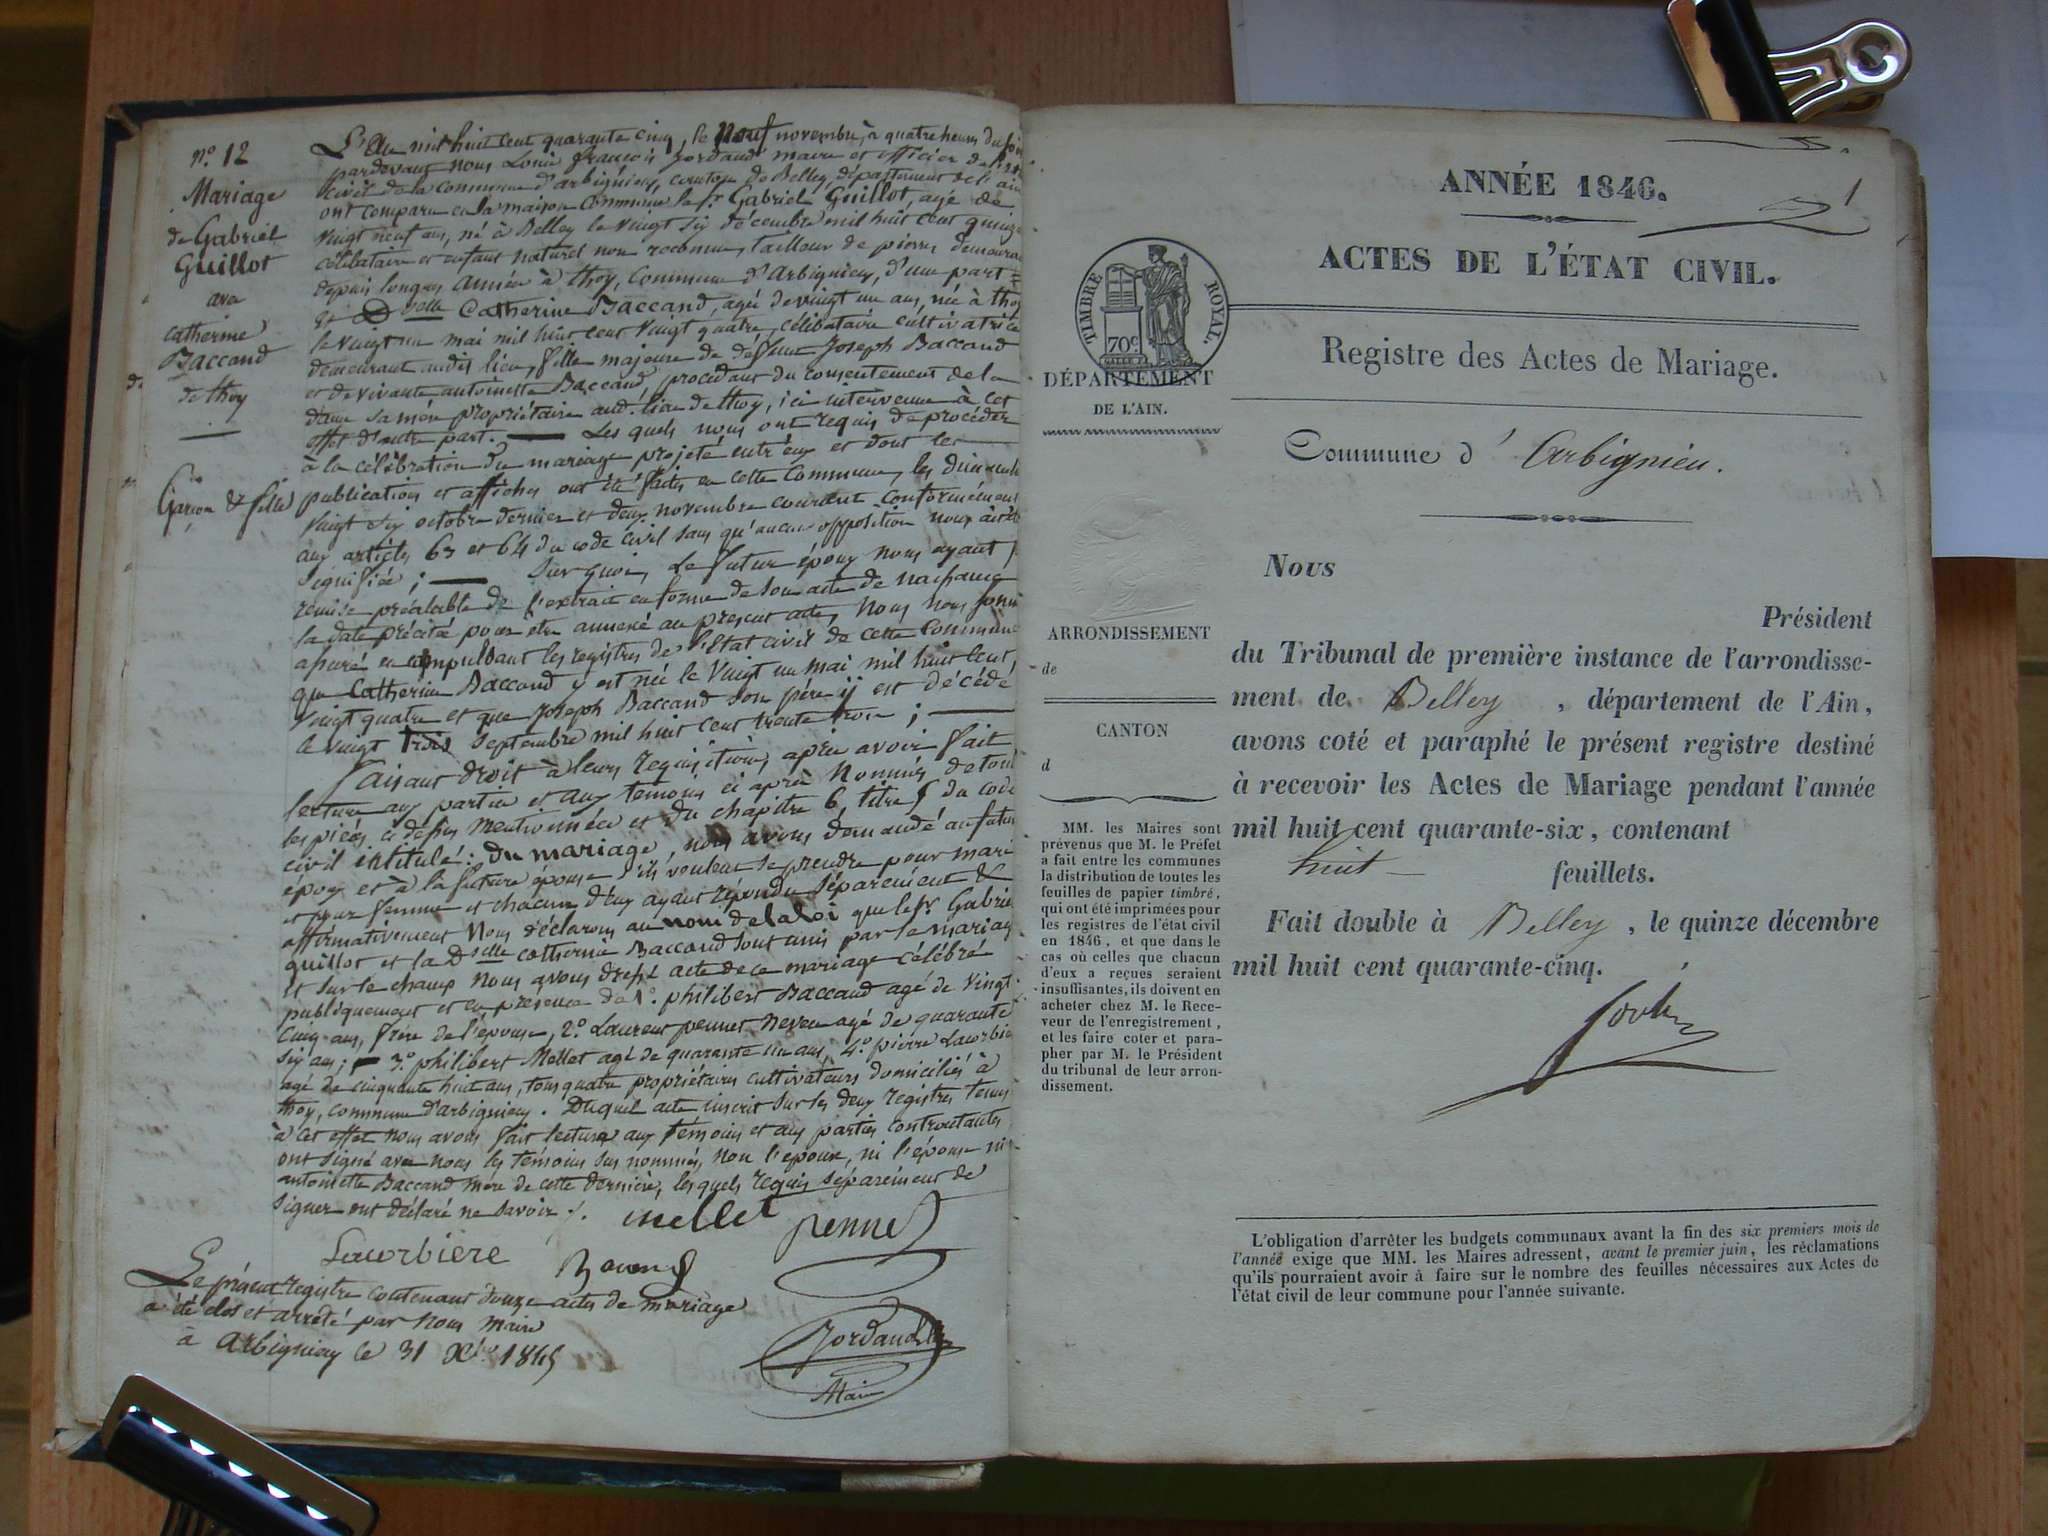 n° 12
Mariage
de Gabriel
Guillot
avec
catherine
Baccand
de thoy
Garçon & fille
L'An mil huit cent quarante cinq, le Neuf novembre, à quatre heures du soir
pardevant nous Louis françois Jordand maire et officier de l'état
civil de la commune d'arbignieu, canton de Belley département de l'ain
ont comparu en la maison commune le Sr Gabriel Guillot, agé de
vingt neuf ans, né à Belley le vingt six décembre mil huit cent quinze
célibataire et enfant naturel non reconnu, tailleur de pierres demeurant
depuis longues années à thoy, commune d'Arbignieu, d'une part =
Et Delle Catherine Baccand, agée de vingt un ans, née à thoy
le vingt un mai mil huit cent vingt quatre, célibataire cultivatrice
demeurant audit lieu, fille majeure de défunt Joseph Baccand
et de vivante antoinette Baccand, procédant du consentement de la
dame sa mère propriétaire aud. lieu de thoy, ici intervenue à cet
effet d'autre part. — Les quels nous ont requis de procéder
à la célébration du mariage projeté entr'eux et dont les
publications et affiches ont été faites en cette commune, les dimanches
vingt six octobre dernier et deux novembre courant conformément
aux articles 63 et 64 du code civil sans qu'aucune opposition nous ait été
signifiée ; — Sur quoi, Le futur époux nous ayant
remise préalable de l'extrait en forme de son acte de naissance
la date précitée pour être annexé au présent acte, Nous nous sommes
assuré en compulsant les registres de l'état civil de cette commune
que Catherine Baccand y est née le vingt un mai mil huit cent
vingt quatre et que Joseph Baccand son père y est décédé
le vingt trois septembre mil huit cent trente trois ; —
faisant droit à leurs requisitions, après avoir fait
lecture aux parties et aux témoins ci après nommés de toutes
les pièces ci dessus mentionnées et du chapitre 6, titre 5 du code
civil intitulé : du mariage, nous avons demandé au futur
époux et à la future épouse s'ils veulent se prendre pour mari
et pour femme et chacun d'eux ayant répondu séparément &
affirmativement Nous déclarons au nom de la loi que le Sr Gabriel
guillot et la Delle catherine Baccand sont unis par le mariage
Et sur le champ nous avons dressé acte de ce mariage célébré
publiquement et en présence de 1° philibert Baccand agé de vingt
cinq ans, frère de l'épouse, 2° Laurent pennet neveu agé de quarante
six ans ; — 3° philibert Mellet agé de quarante un ans, 4° pierre Lacorbière
agé de cinquante huit ans, tous quatre propriétaires cultivateurs domiciliés à
thoy, commune d'arbignieu. Duquel acte inscrit sur les deux registres tenus
à cet effet nous avons fait lecture aux témoins et aux parties contractantes
ont signé avec nous les témoins sus nommés, non l'époux, ni l'épouse ni
antoinette Baccand mère de cette dernière, lesquels requis séparément de
signer ont déclaré ne savoir /.
mellet pennet
Lacorbière
Le présent registre contenant douze actes de mariage
a été clos et arrêté par nous maire
à Arbignieu le 31 Xbre 1845
Jordand
Maire
1
ANNÉE 1846.
ACTES DE L'ÉTAT CIVIL.
Registre des Actes de Mariage.
TIMBRE ROYAL.
70c.
DÉPARTEMENT
DE L'AIN.
Commune d'Arbignieu.
ARRONDISSEMENT
de
CANTON
d
MM. les Maires sont
prévenus que M. le Préfet
a fait entre les communes
la distribution de toutes les
feuilles de papier timbré,
qui ont été imprimées pour
les registres de l'état civil
en 1846, et que dans le
cas où celles que chacun
d'eux a reçues seraient
insuffisantes, ils doivent en
acheter chez M. le Rece-
veur de l'enregistrement,
et les faire coter et para-
pher par M. le Président
du tribunal de leur arron-
dissement.
Nous
Président
du Tribunal de première instance de l'arrondisse-
ment de Belley, département de l'Ain,
avons coté et paraphé le présent registre destiné
à recevoir les Actes de Mariage pendant l'année
mil huit cent quarante-six, contenant
huit feuillets.
Fait double à Belley, le quinze décembre
mil huit cent quarante-cinq.
L'obligation d'arrêter les budgets communaux avant la fin des six premiers mois de
l'année exige que MM. les Maires adressent, avant le premier juin, les réclamations
qu'ils pourraient avoir à faire sur le nombre des feuilles nécessaires aux Actes de
l'état civil de leur commune pour l'année suivante.